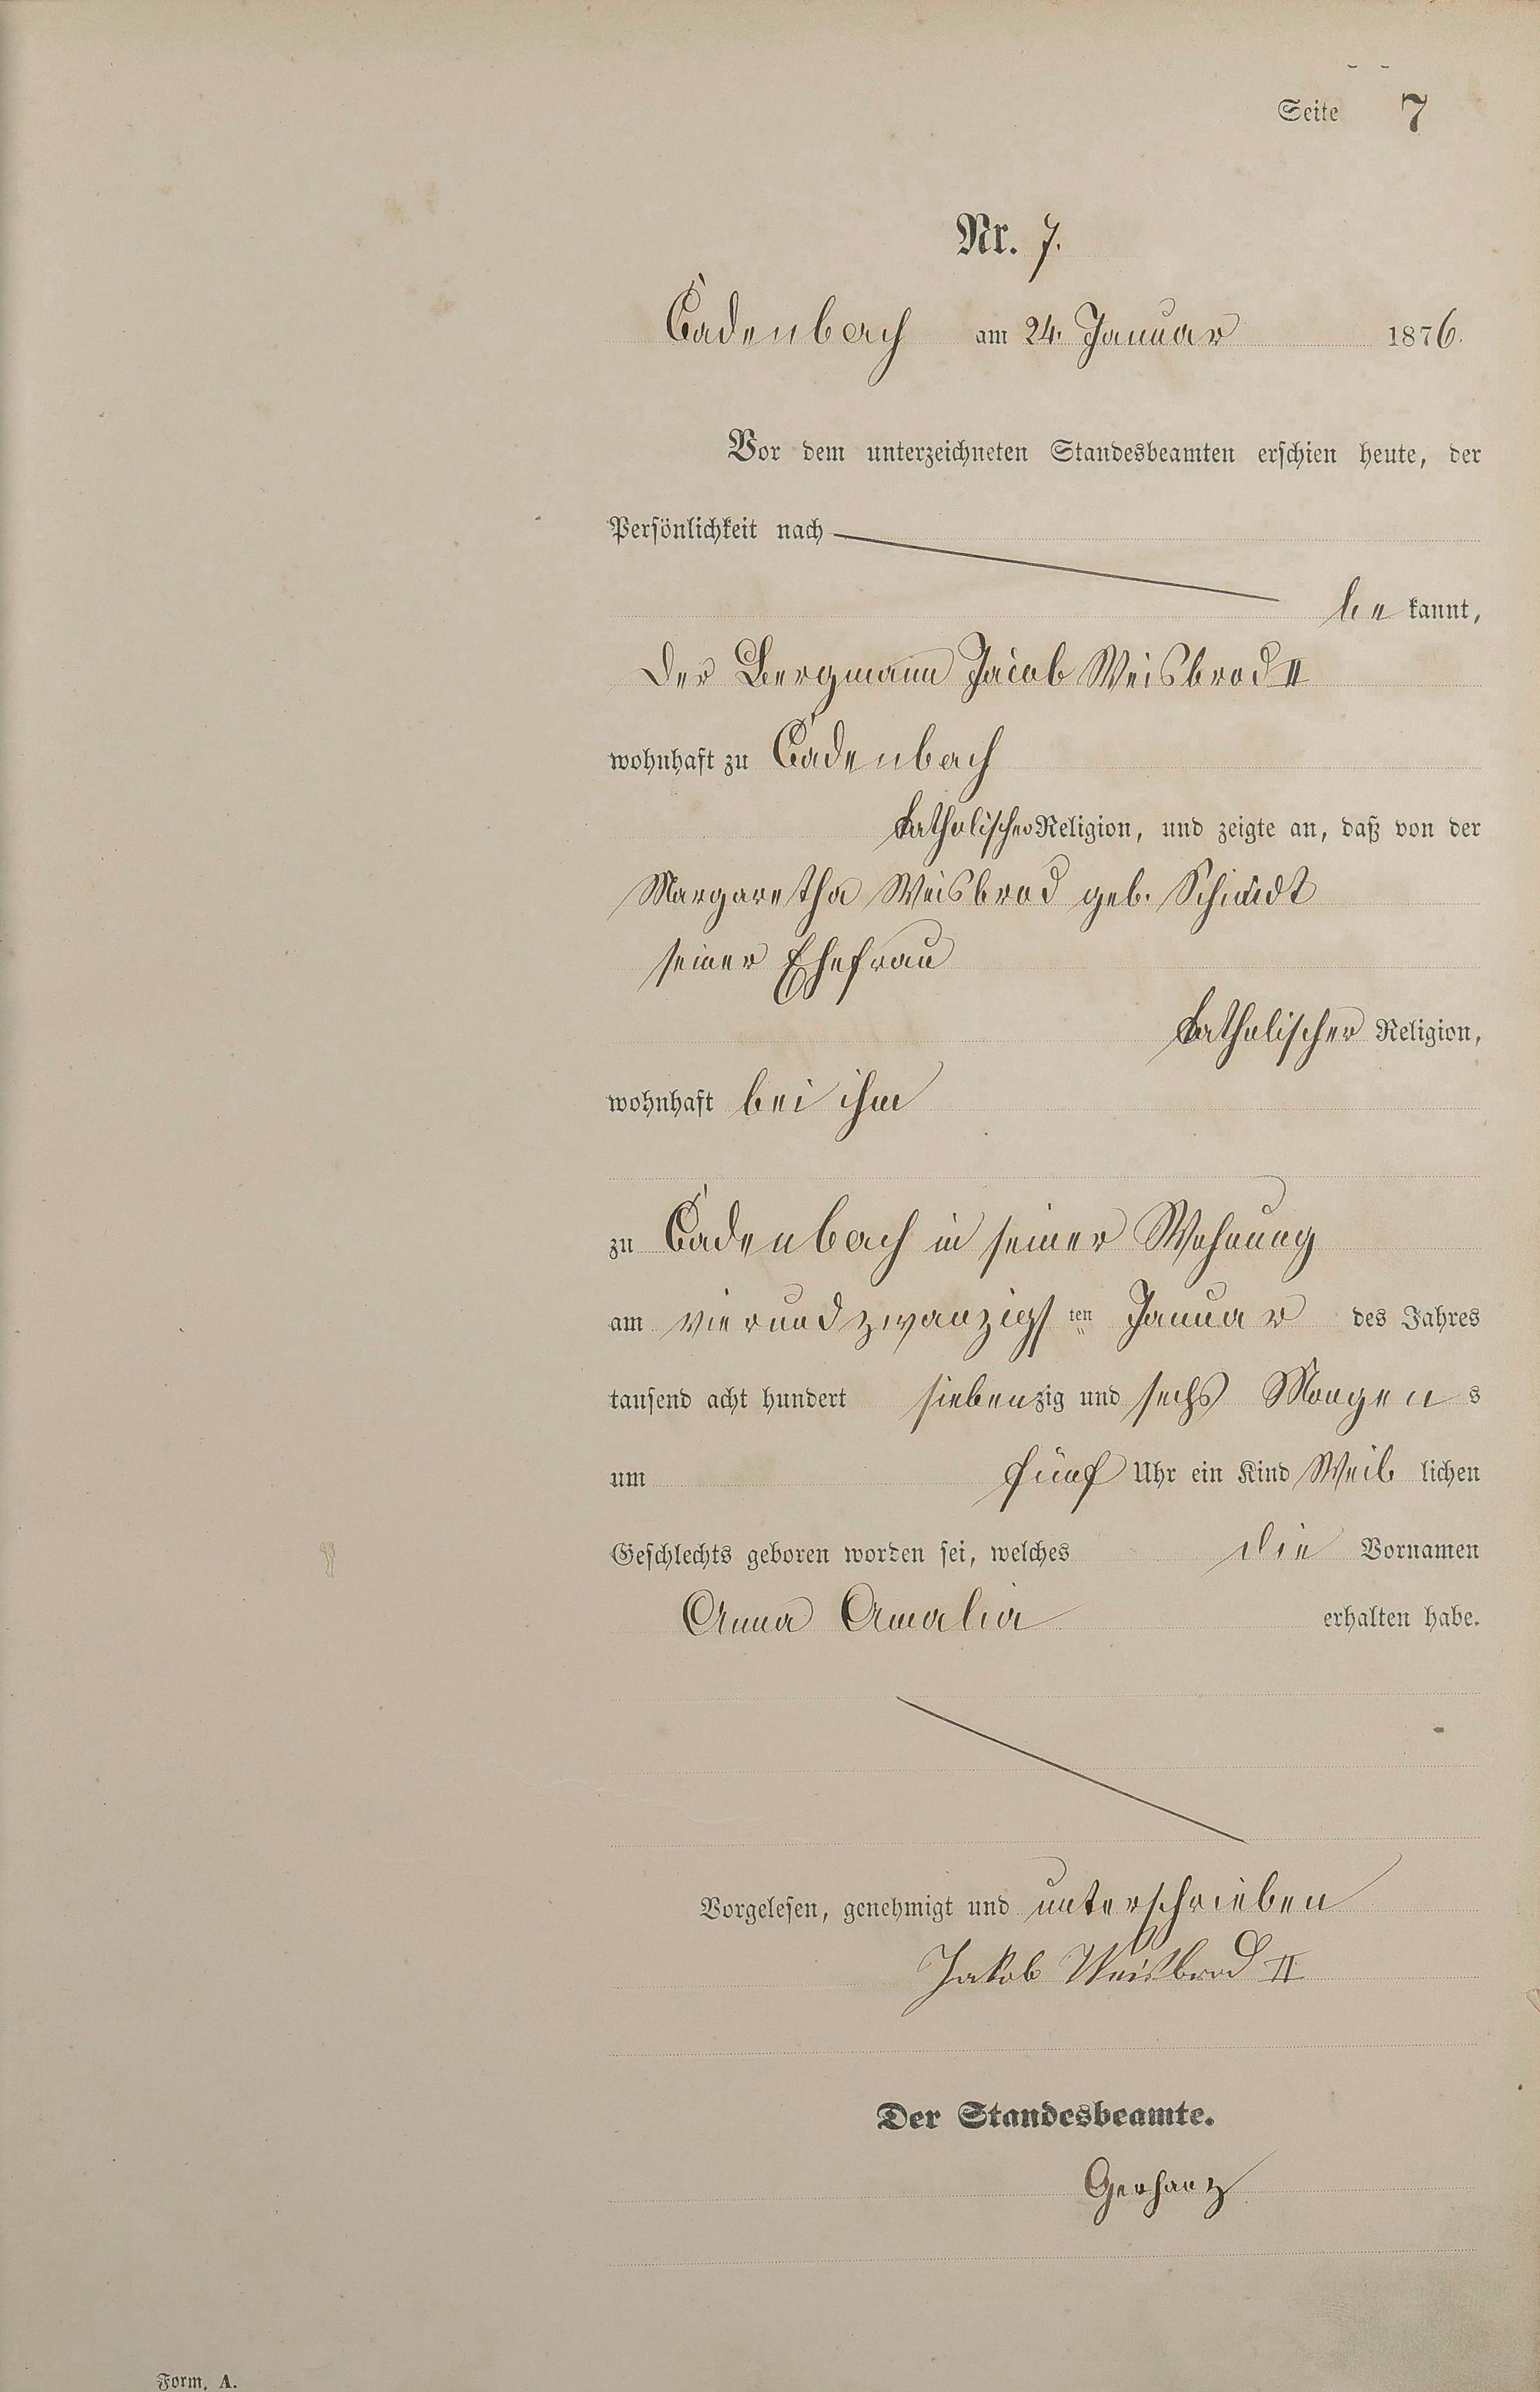 Seite 7
Nr. 7.
Cadenbach am 24. Januar 1876.
Vor dem unterzeichneten Standesbeamten erschien heute, der
Persönlichkeit nach
be kannt,
der Bergmann Jacob Weisbrod II
wohnhaft zu Cadenbach
katholischer Religion, und zeigte an, daß von der
Margaretha Weisbrod geb. Schmidt
seiner Ehefrau
katholischer Religion,
wohnhaft bei ihm
zu Cadenbach in seiner Wohnung
am vierundzwanzigs ten Januar des Jahres
tausend acht hundert siebenzig und sechs Morgen s
um fünf Uhr ein Kind Weib lichen
Geschlechts geboren worden sei, welches die Vornamen
Anna Amalia erhalten habe.
Vorgelesen, genehmigt und unterschrieben
Jakob Weisbrod II
Der Standesbeamte.
Gerhanz
Form. A.